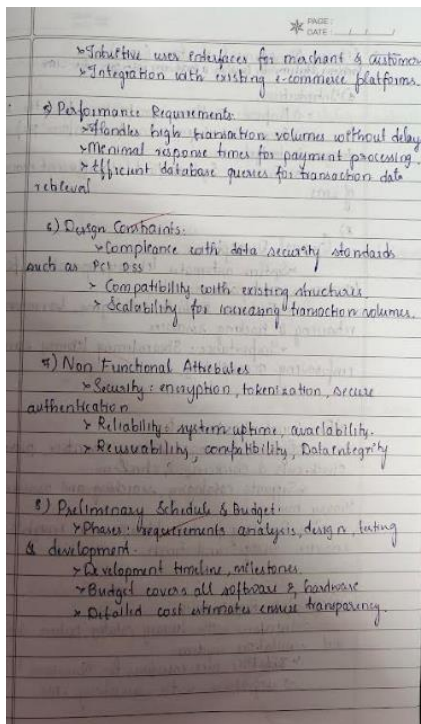 PAGE :
DATE : / /
➤ Intuitive user interfaces for merchant & customer
➤ Integration with existing e-commerce platforms.
5) Performance Requirements:
➤ Handles high transation volumes without delay
➤ Minimal response times for payment processing.
➤ Efficient database queries for transaction data
retrieval
6) Design Constraints:
➤ Compliance with data security standards
such as PCI DSS
➤ Compatibility with existing structures.
➤ Scalability for increasing transaction volumes.
7) Non Functional Attributes
➤ Security: encryption, tokenization, secure
authentication
➤ Reliability: system uptime, availability.
➤ Reusability, compatibility, Data integrity
8) Preliminary Schedule & Budget:
➤ Phases: requirements analysis, design, testing
& development.
➤ Development timeline, milestones.
➤ Budget covers all software & hardware
➤ Detailed cost estimates ensure transparency.